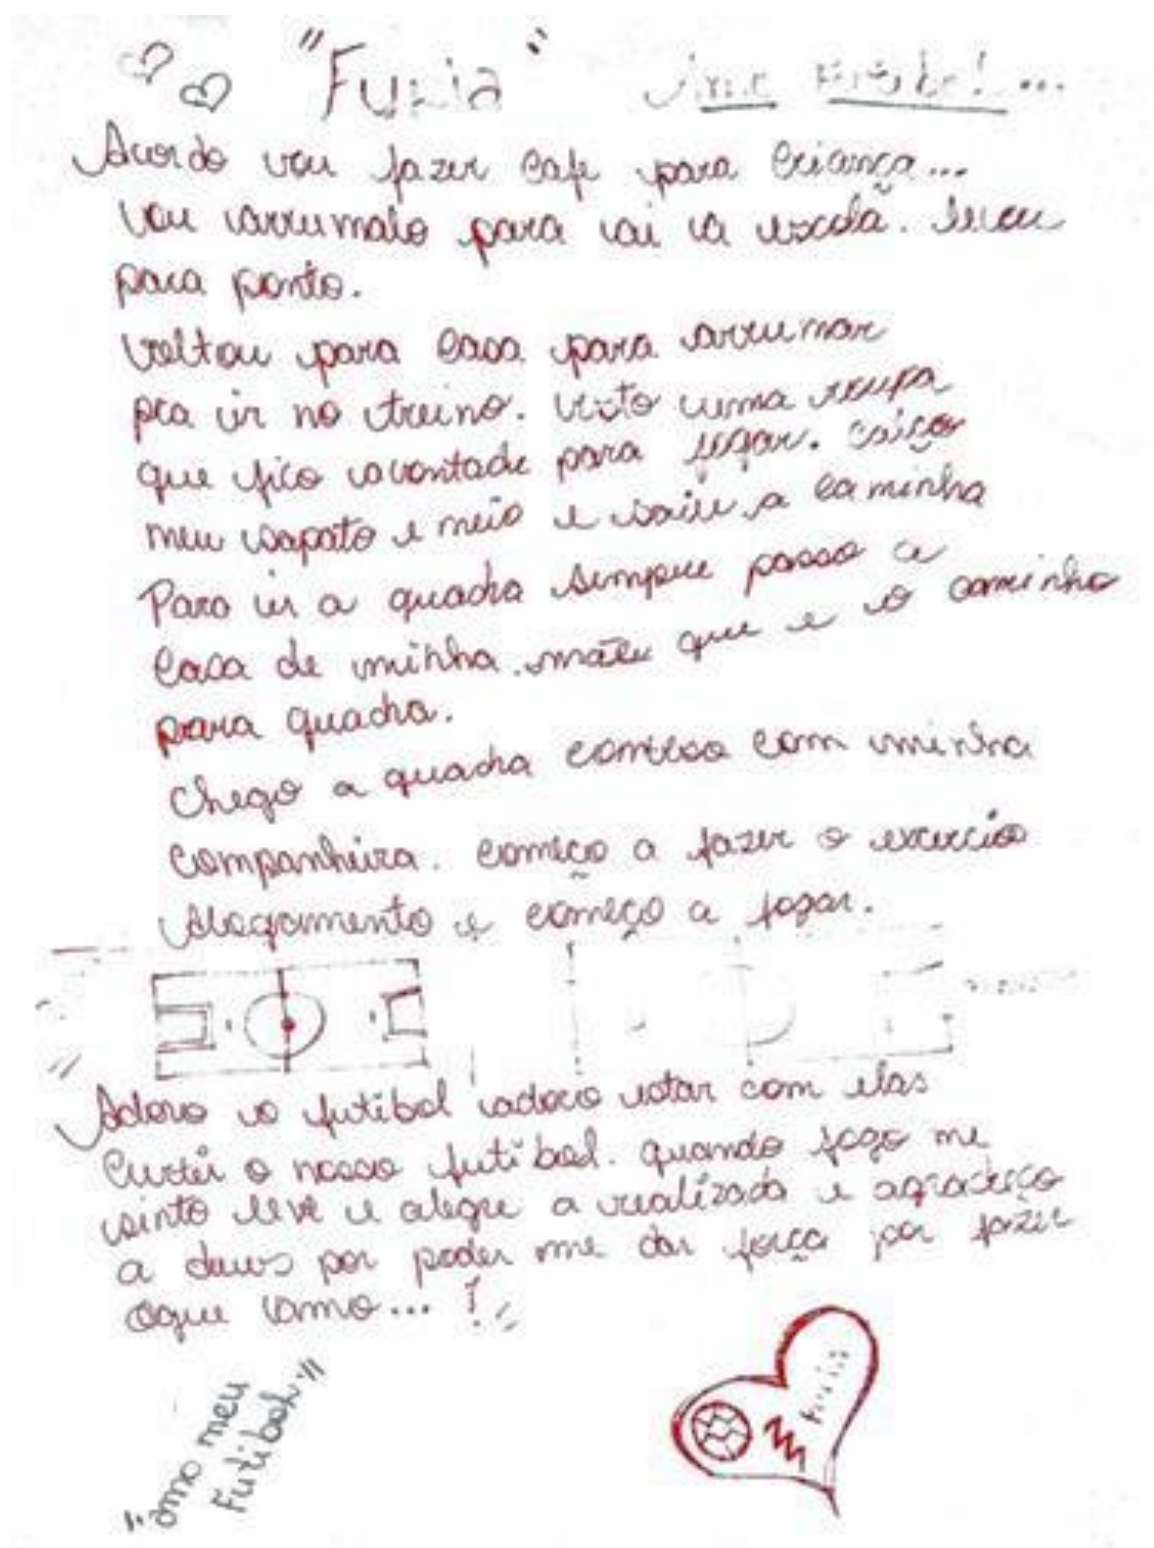 "Furia" Amo futibol...
Acordo vou fazer cafe para criança...
vou arrumalo para ai a escola. levou
para ponto.
voltou para casa para arrumar
pra ir no treino. visto uma roupa
que fico avontade para jogar. caiço
meu sapato e meio e saiu a caminha
Para ir a quadra sempre passo a
casa de minha mãeu que e o caminho
para quadra.
chego a quadra comesso com minha
companheira. começo a fazer o excercisio
Alogamento e começo a jogar.
Adoro o futibol adoro estar com elas
Curtir o nosso futibol. quando jogo me
sinto leve e alegre a realizada e agradesço
a deus por poder me dar força por fazer
oque amo... !
"amo meu
Futibol"
Furia